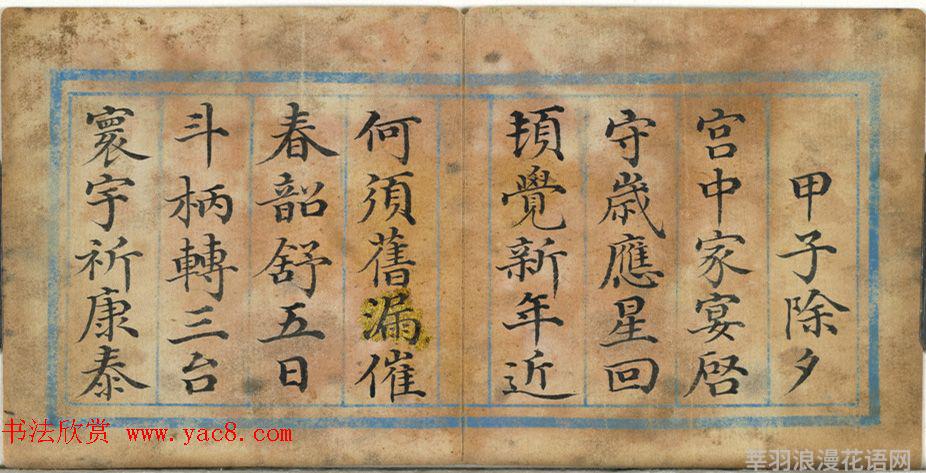 甲子除夕
宫中家宴啓
守歲應星回
頓覺新年近
何須舊漏催
春韶舒五日
斗柄轉三台
寰宇祈康泰
书法欣赏 www.yac8.com
莘羽浪漫花语网